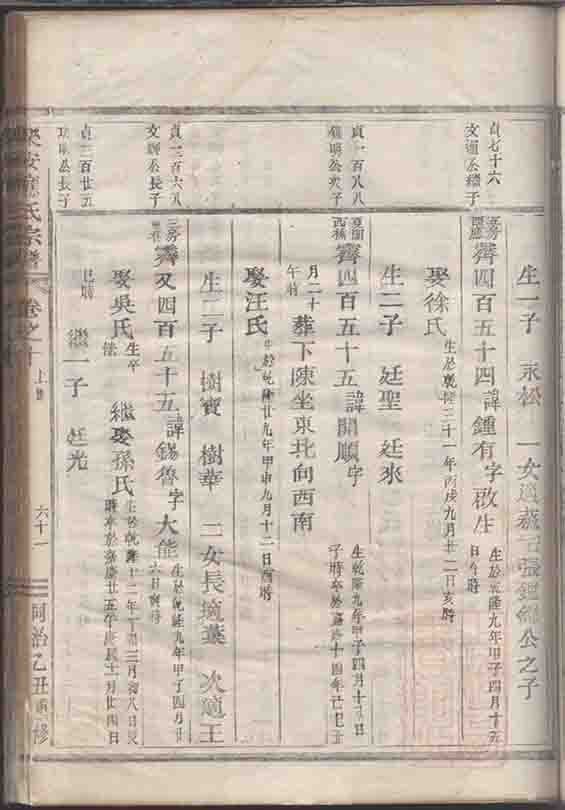 貞七十六
文通公繼子
生一子 永松 一女適
公之子
霽四百五十四諱鍾有字啟生
生於乾隆九年甲子四月十五
日午時
娶徐氏
生於乾隆二十一年丙戌九月十二日亥時
生二子 廷聖 廷來
貞一百八八
公次子
霽四百五十五諱開順字
生乾隆九年甲子四月十八日
子時卒於嘉慶十四年己巳十
月二十
午時
葬下陳坐東北向西南
娶汪氏
生於乾隆廿九年甲申九月十二日酉時
生二子 樹寶 樹華 二女長適葉 次適王
貞一百六八
文 公長子
霽又四百五十五諱錫魯字大能
生於乾隆九年甲子四月廿
六日寅時
娶吳氏
生卒
佚
繼娶孫氏
生於乾隆十二年丁卯三月初八日
時卒於嘉慶廿五年庚辰十一月廿四日
巳時
繼一子 廷光
貞二百廿五
公長子
樂安 氏宗譜
卷之十
上
六十一
同治乙丑重修